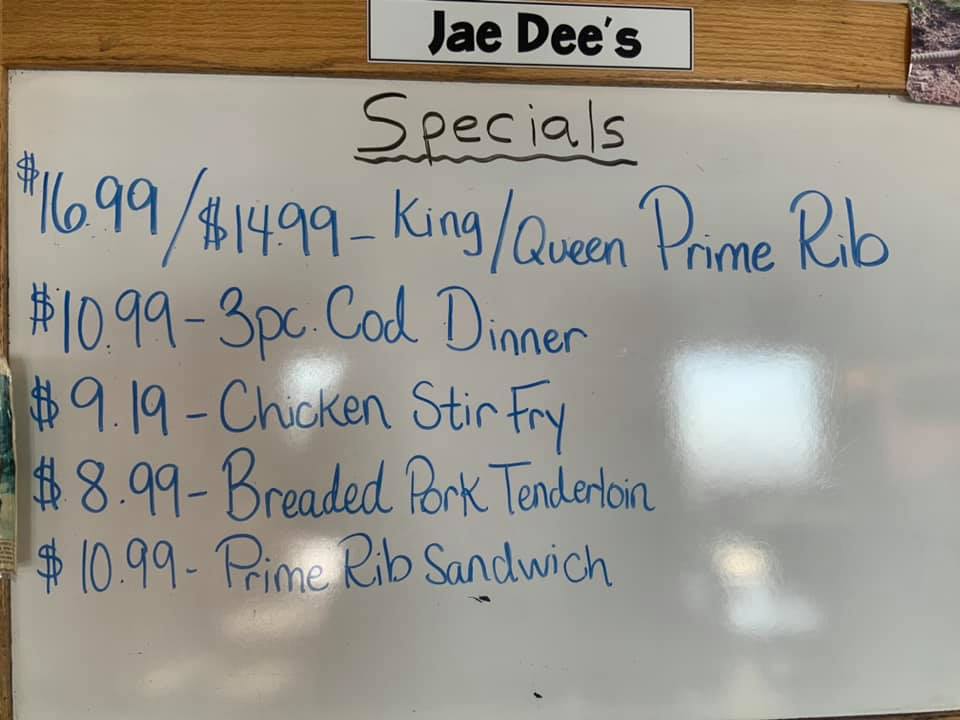 Jae Dee's
Specials
$16.99/$14.99 - King/Queen Prime Rib
$10.99 - 3pc. Cod Dinner
$9.19 - Chicken Stir Fry
$8.99 - Breaded Pork Tenderloin
$10.99 - Prime Rib Sandwich